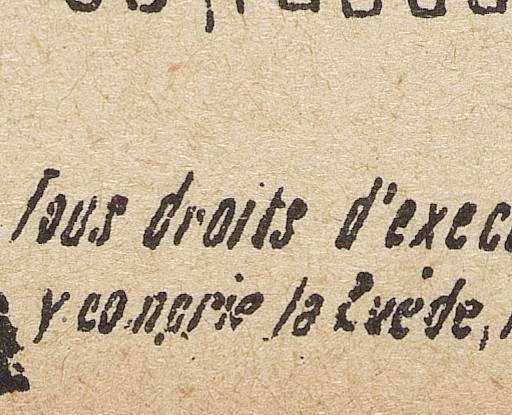 Tous droits d'exec
y compris la Suède,